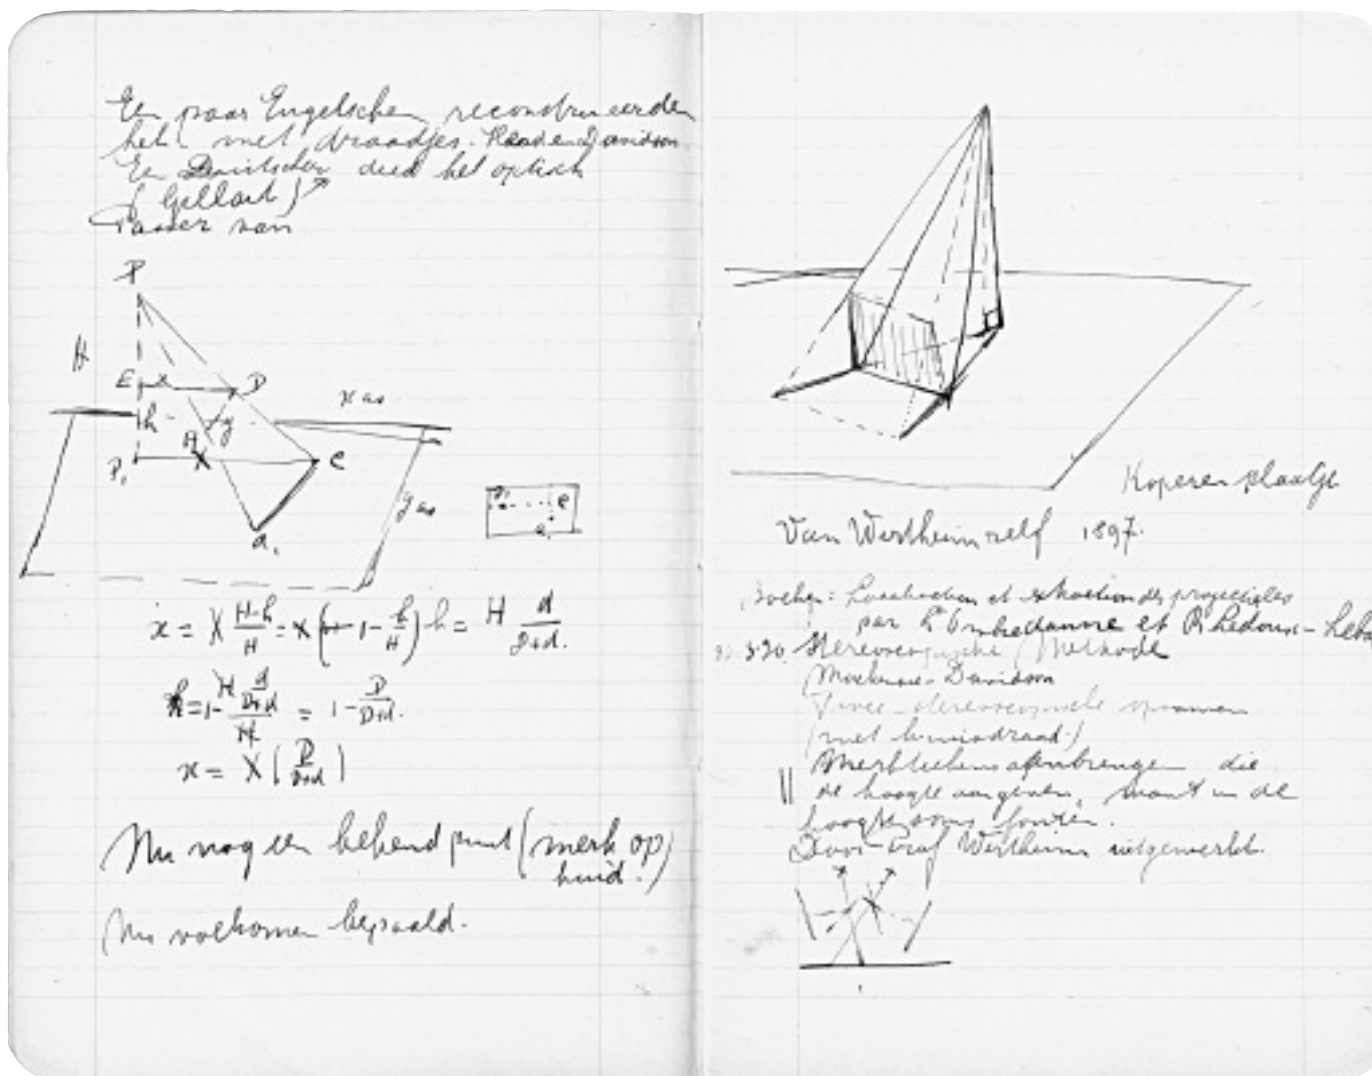 Een paar Engelschen reconstrueerden
het met draadjes. Davidson
Een Duitscher deed het optisch
(Gillart)
Passer van
P
H
E x D
h y
x as
P₁ A X C
y as
a₁
e
x = X (H-h)/H = X (1 - h/H) h = H d/(D+d).
= 1 - (H d/(D+d))/H = 1 - D/(D+d).
x = X (D/(D+d))
Nu nog een bekend punt (merk op
huid.)
Nu volkomen bepaald.
Koperen plaatje
Van Wertheim zelf 1897.
Localisation et extraction des projectiles
par L'Ombredanne et R. Ledoux-Leba
Stereoscopische Methode
Mackenzie-Davidson
Twee stereoscopische opnamen
(met kruisdraad)
Merkteekens aanbrengen die
de hoogte aangeven, want in de
hoogte soms fouten.
Door Graf Wertheim uitgewerkt.